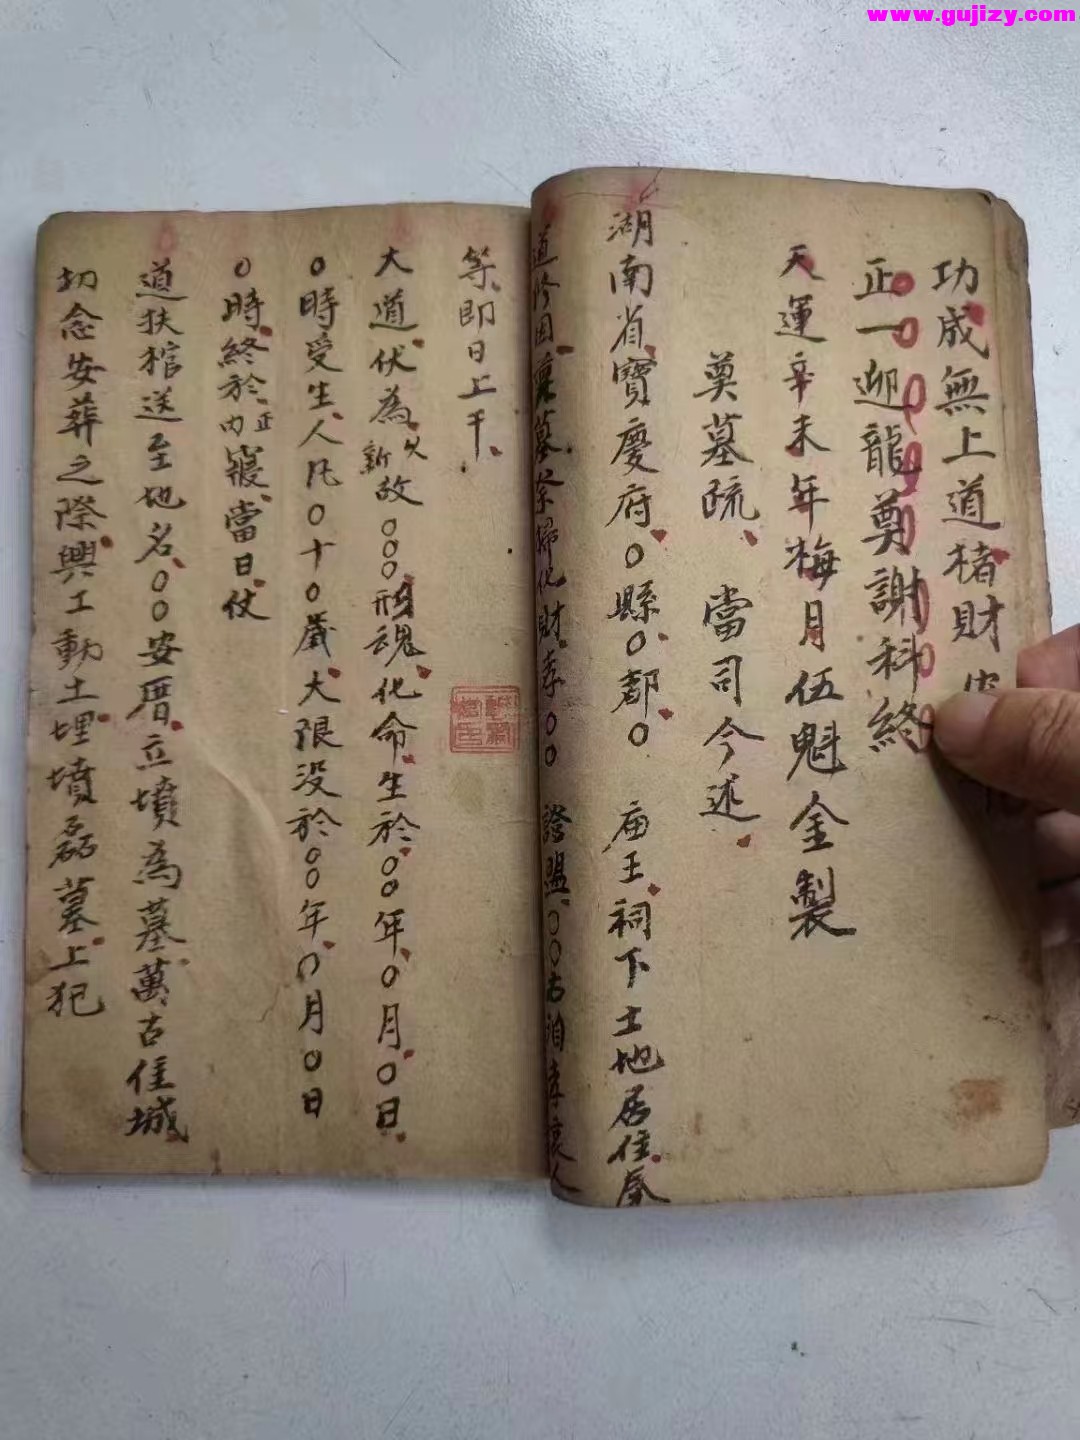 www.gujizy.com
功成無上道楮財
正一迎龍奠謝科終
天運辛未年梅月伍魁金製
奠墓疏 當司今述
湖南省寶慶府〇縣〇都〇 庙王祠下土地居住奉
道修因 墓祭掃化財孝〇〇 證盟〇〇古 孝 人
等即日上干
大道伏為久新故〇〇〇形魂化命生於〇〇年〇月〇日
〇時受生人凡〇十〇歲大限没於〇〇年〇月〇日
〇時終於正内寢當日仗
道扶棺送至地名〇〇安厝立墳為墓萬古佳城
切念安葬之際興工動土埋墳磊墓上犯